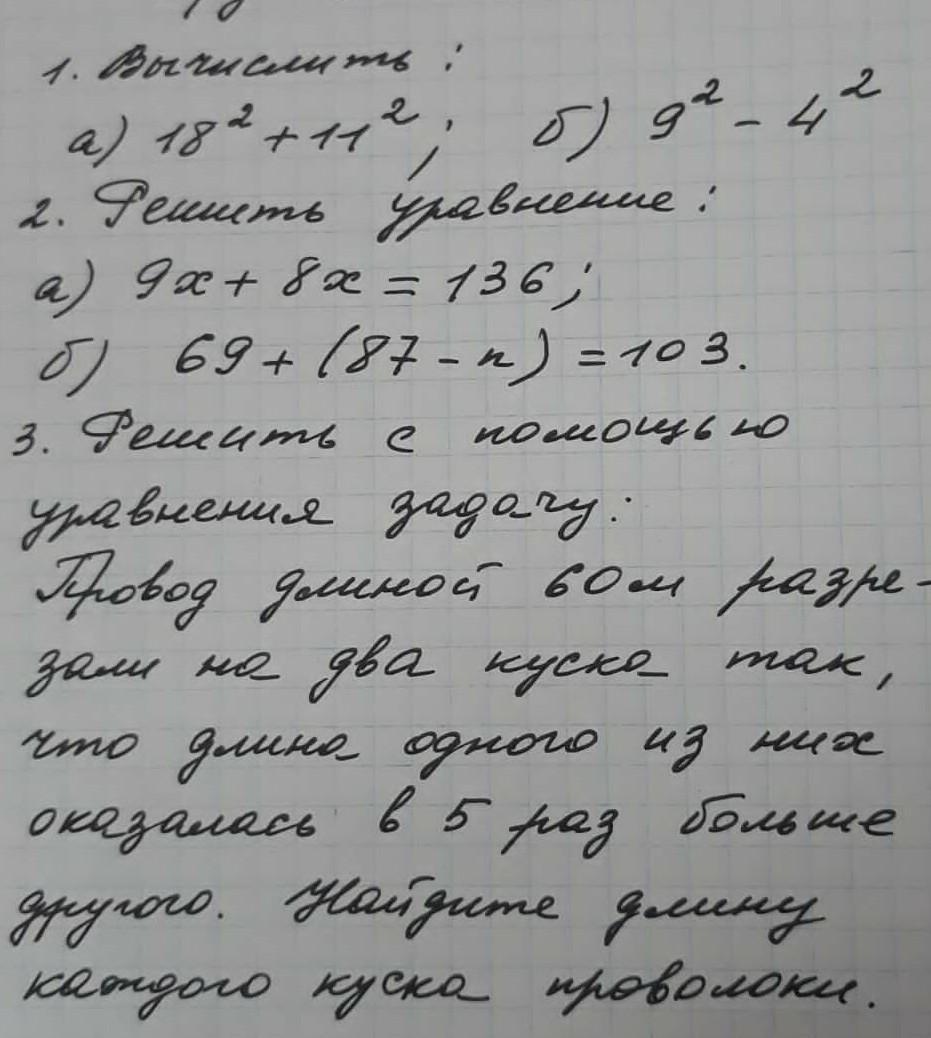 1. Вычислить:
а) 18² + 11²; б) 9² - 4²
2. Решить уравнение:
а) 9x + 8x = 136;
б) 69 + (87 - n) = 103.
3. Решить с помощью
уравнения задачу:
Провод длиной 60м разре-
зали на два куска так,
что длина одного из них
оказалась в 5 раз больше
другого. Найдите длину
каждого куска проволоки.